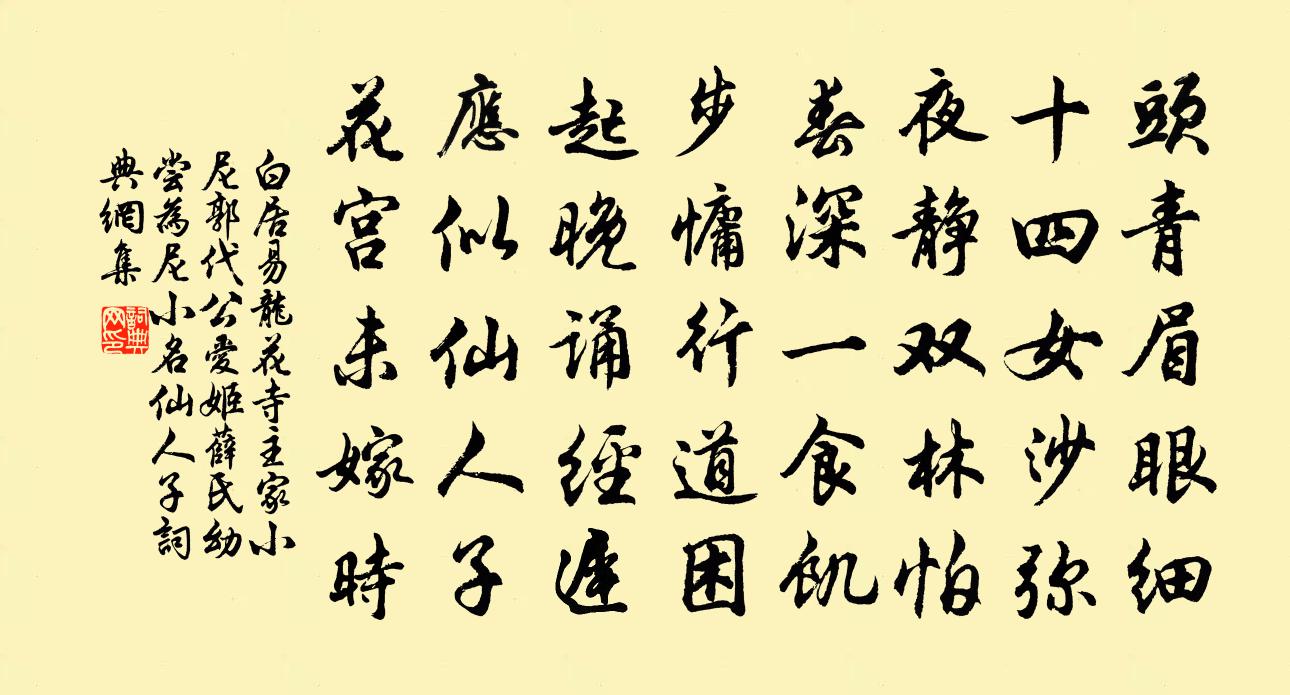 頭青眉眼細
十四女沙弥
夜静双林怕
春深一食飢
步慵行道困
起晚诵經遲
應似仙人子
花宫未嫁時
白居易龍花寺主家小
尼郭代公愛姬薛氏幼
尝為尼小名仙人子詞
典網集
詞典
网印